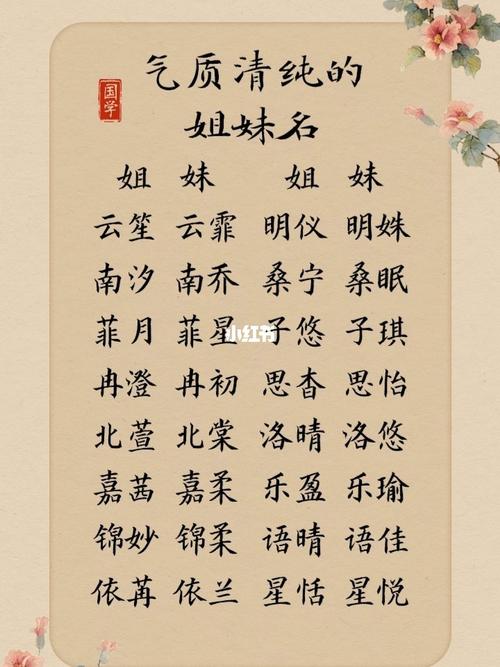 国学
气质清纯的
姐妹名
姐 妹 姐 妹
云笙 云霏 明仪 明姝
南汐 南乔 桑宁 桑眠
菲月 菲星 子悠 子琪
小红书
冉澄 冉初 思杳 思怡
北萱 北棠 洛晴 洛悠
嘉茜 嘉柔 乐盈 乐瑜
锦妙 锦柔 语晴 语佳
依苒 依兰 星恬 星悦